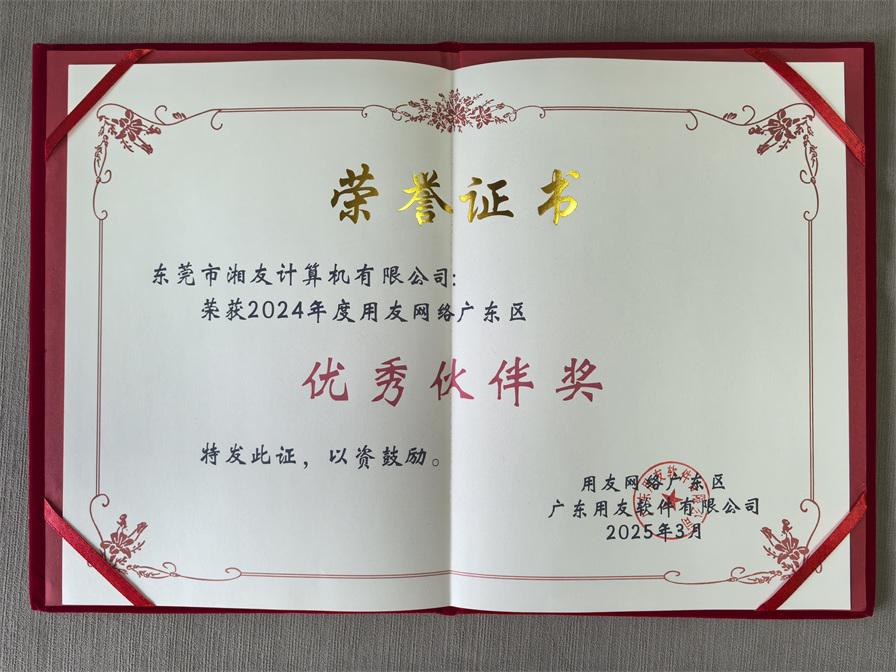 荣誉证书
东莞市湘友计算机有限公司:
荣获2024年度用友网络广东区
优秀伙伴奖
特发此证，以资鼓励。
用友网络广东区
广东用友软件有限公司
2025年3月